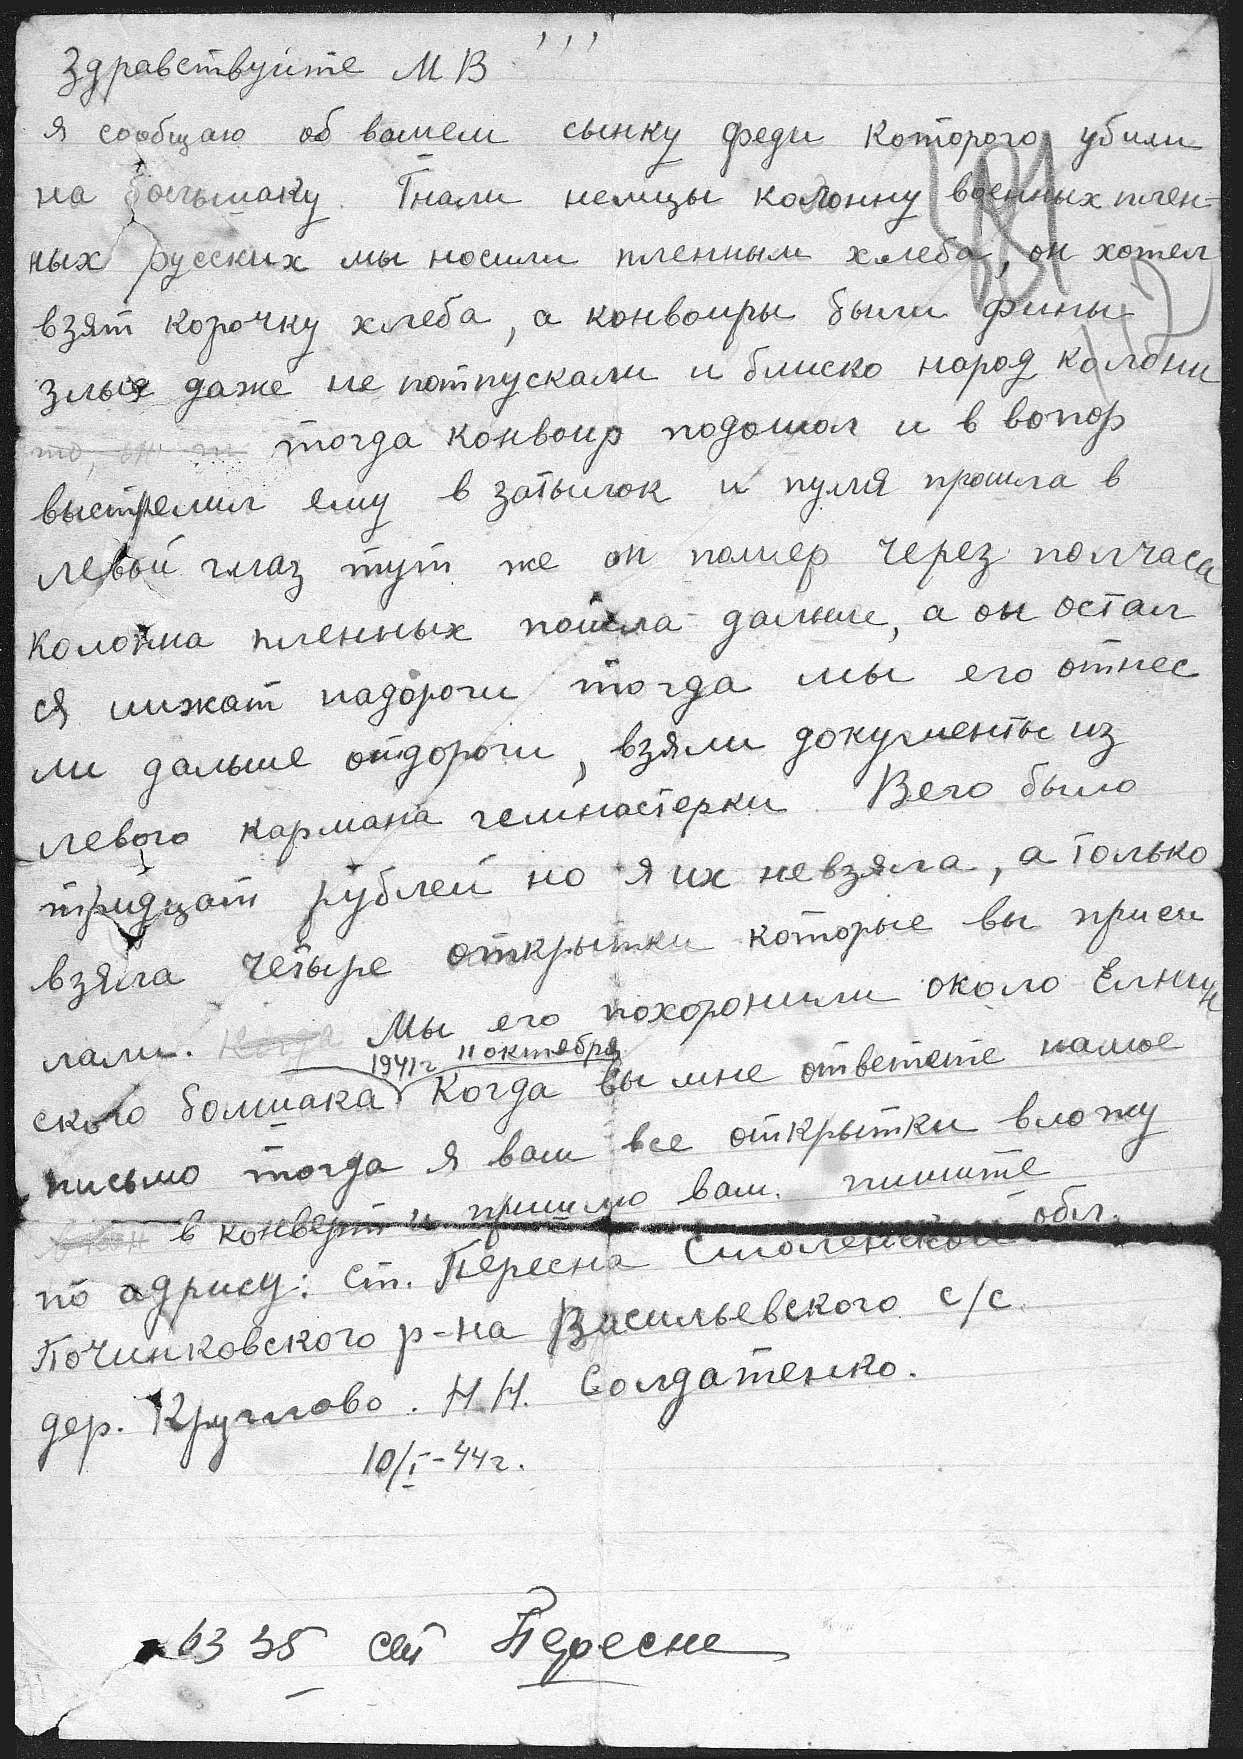 Здравствуйте М В
я сообщаю об вашем сынку феди которого убили
на большаку. Гнали немцы колонну военных плен-
ных русских мы носили пленным хлеба, он хотел
взят корочку хлеба, а конвоиры были фины
злые даже не потпускали и блиско народ к колони
тогда конвоир подошол и в вопор
выстрелил ему в затылок и пуля прошла в
левый глаз тут же он помер через полчаса
колонна пленных пошла дальше, а он остал
ся лижат надороги тогда мы его отнес
ли дальше отдороги, взяли документы из
левого кармана гемнастерки. Вего было
тридцат рублей но я их невзяла, а только
взяла четыре открытки которые вы приси
лали. Когда Мы его похоронили около Елнин
1941г 11 октября
ского болшака Когда вы мне ответете намое
письмо тогда я вам все открытки вложу
в конверт и пришлю вам. пишите
по адрису: ст. Пересна Смоленской обл.
Починковского р-на Васильевского с/с
дер. Круглово. Н.Н. Солдатенко.
10/I-44г.
Пересне